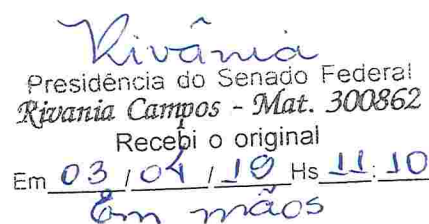 Rivânia
Presidência do Senado Federal
Rivania Campos - Mat. 300862
Recebi o original
Em 03 / 04 / 19 Hs 11:10
Em mãos